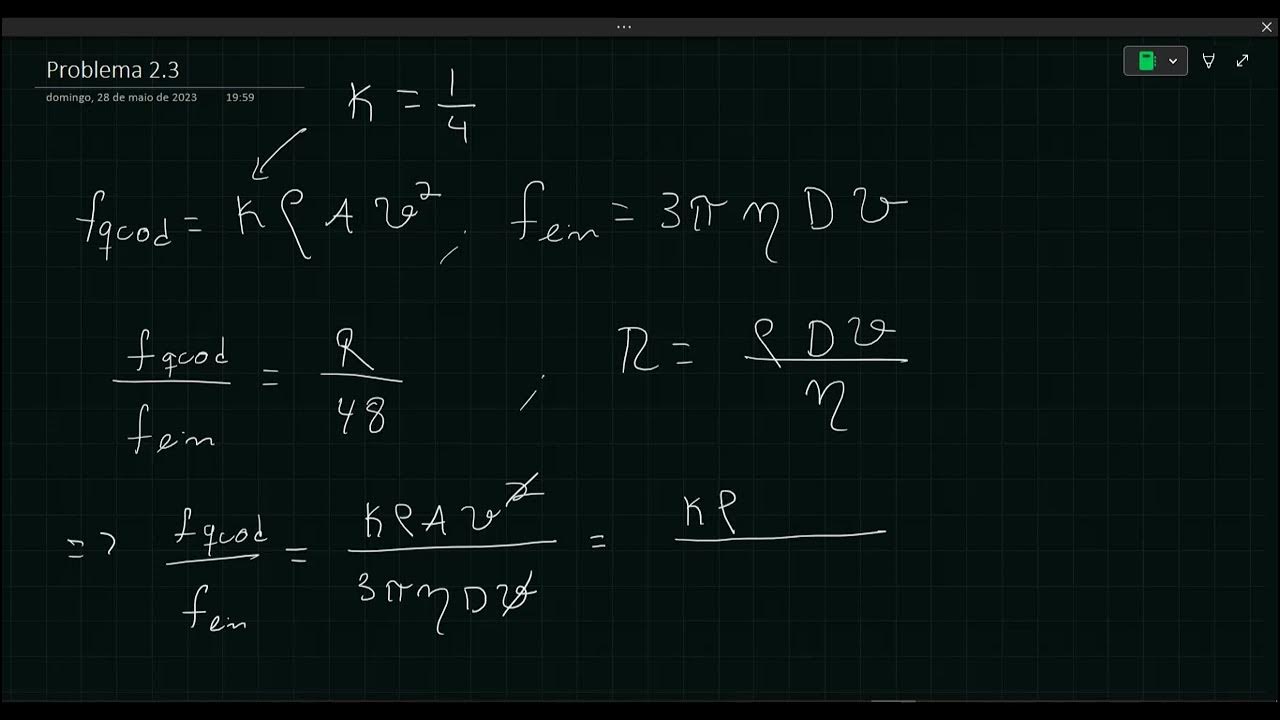 Problema 2.3
domingo, 28 de maio de 2023 19:59
K = 1/4
f_qcod = K ρ A v² ; f_ein = 3π η D v
f_qcod / f_ein = R / 48 ; R = ρ D v / η
=> f_qcod / f_ein = K ρ A v² / 3 π η D v = K ρ